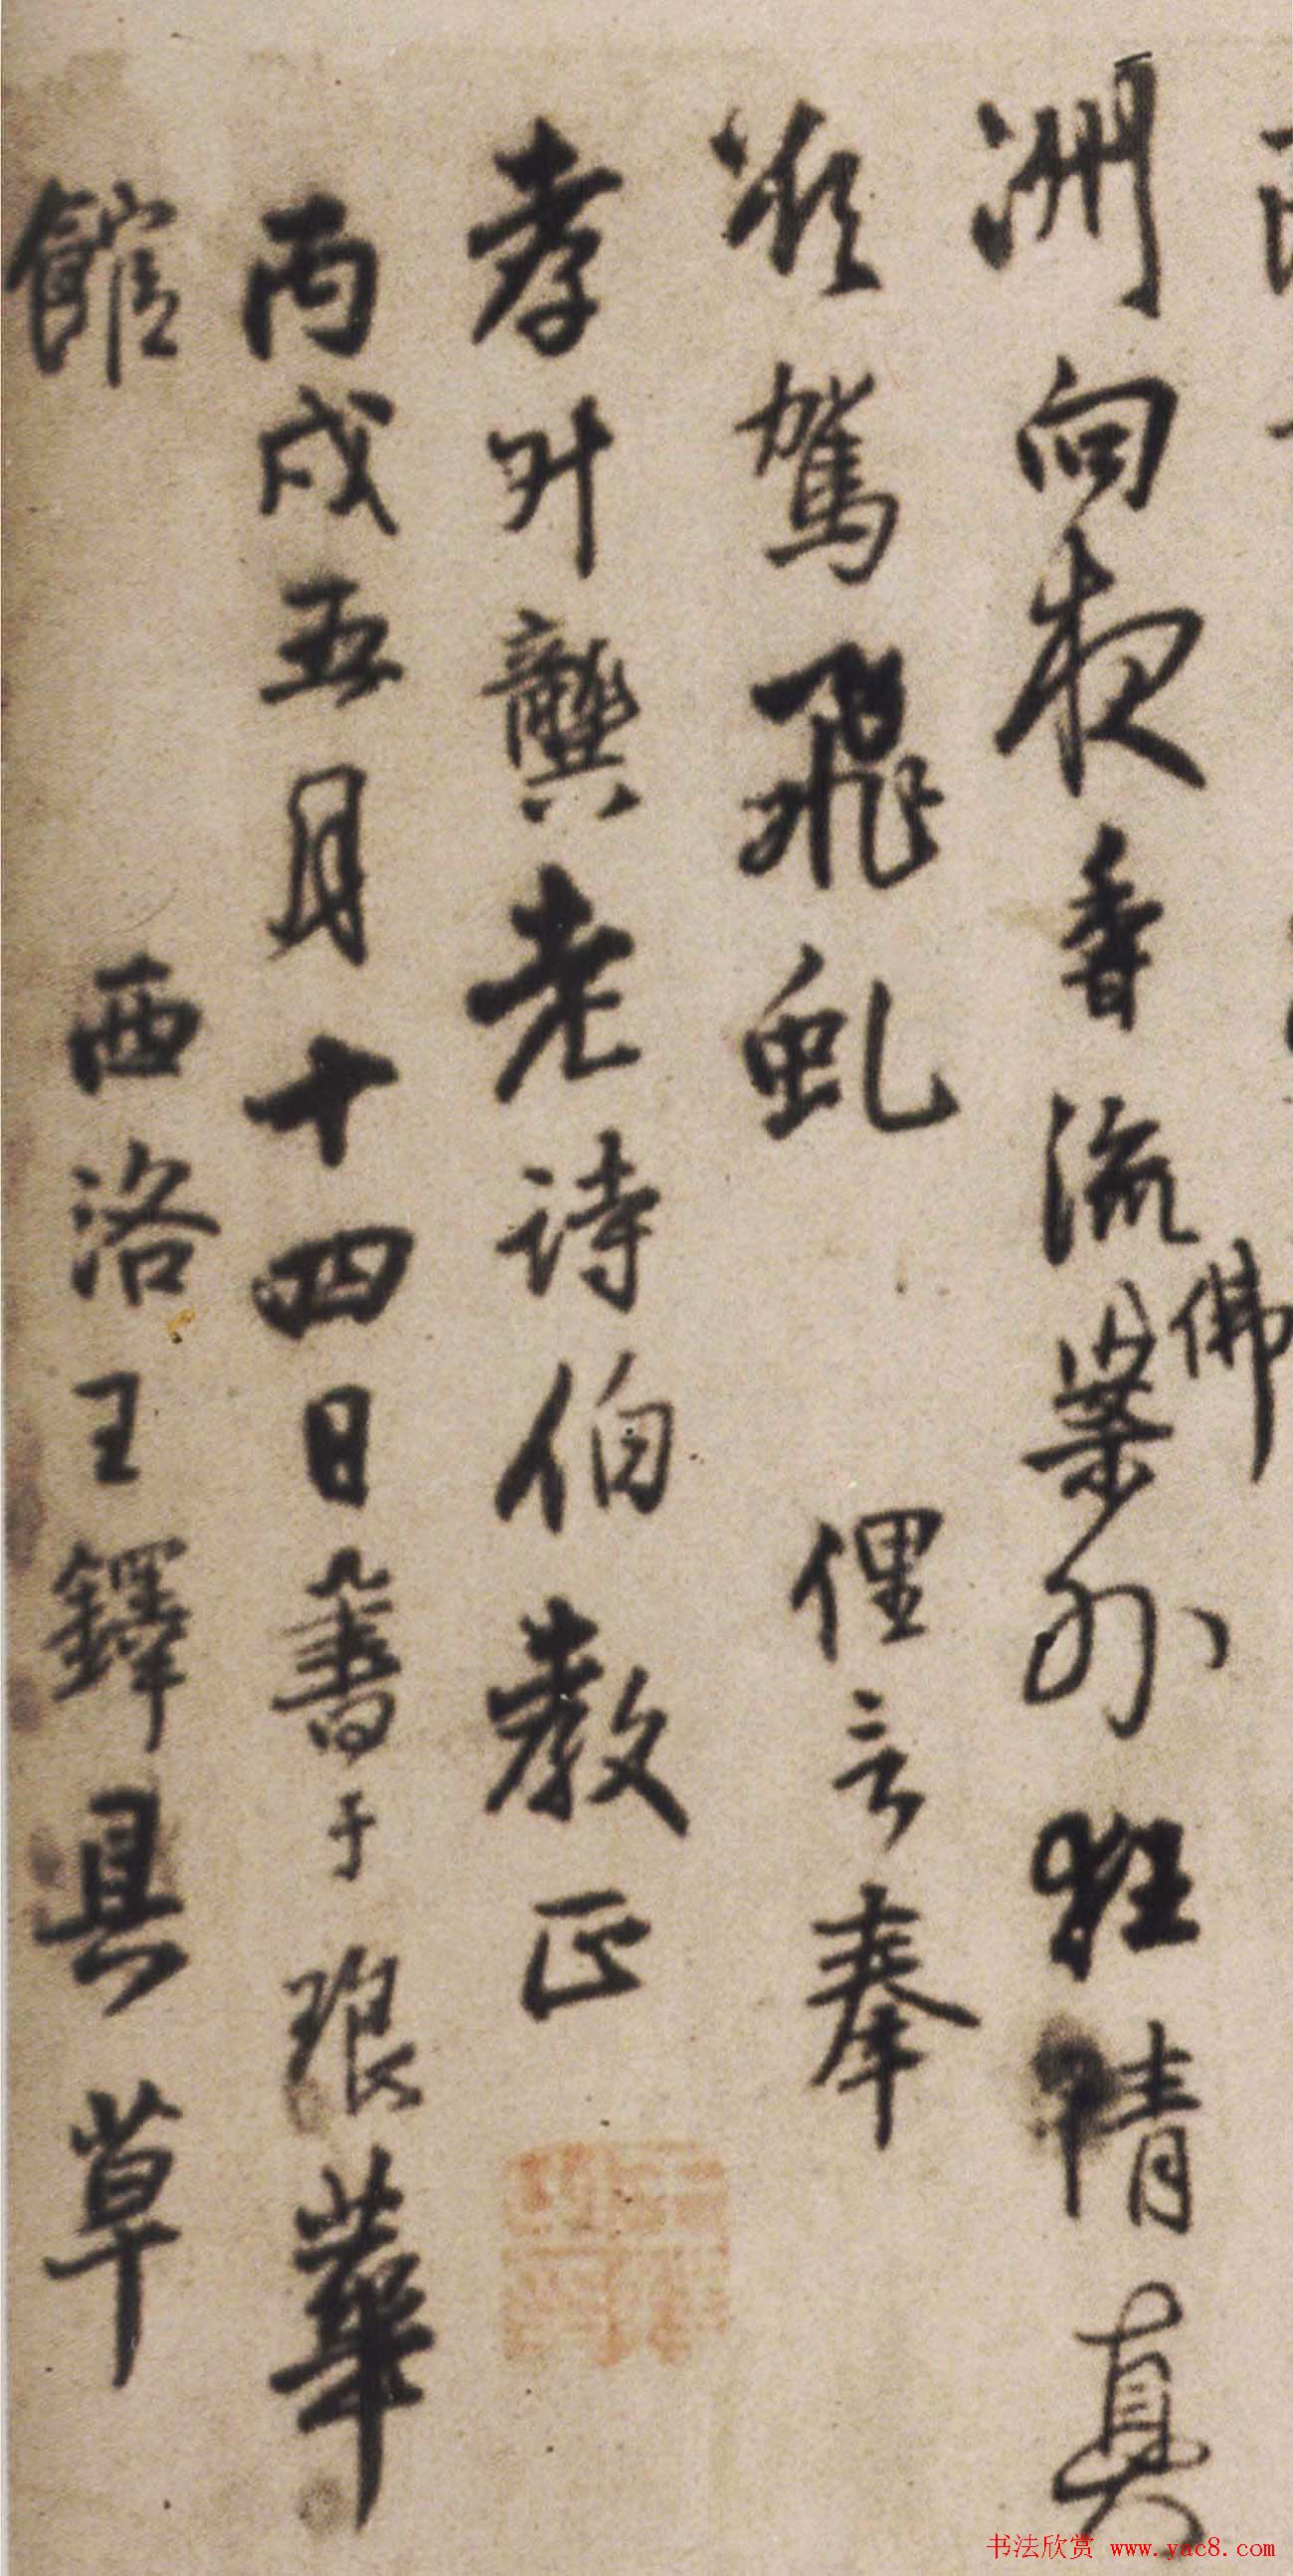 洲向夜香流梁外狂情真
佛
欲駕飛虬 俚言奉
孝升龔老詩伯教正
丙戌五月十四日書于琅華
館 西洛王鐸具草
书法欣赏 www.yac8.com